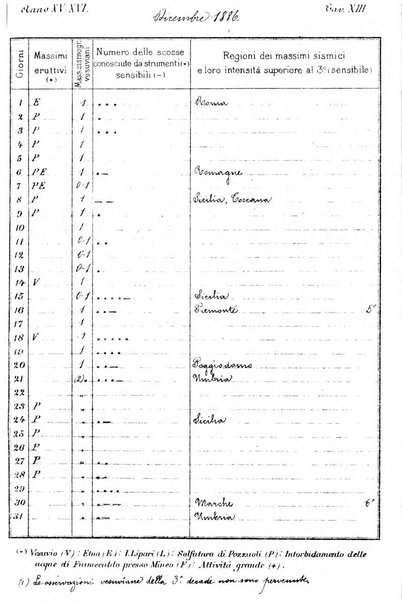 Anno XV-XVI. Dicembre 1886. Tav. XIII
Giorni Massimi eruttivi (*) Mass. sismogr. vesuviani Numero delle scosse conosciute da strumenti (•) sensibili (–) Regioni dei massimi sismici e loro intensità superiore al 3° (sensibile)
1 E 1 • • • Roma
2 P 1 •
3 P 1 • • •
4 P 1
5 P 1
6 PE 1 • – Romagne
7 PE 0-1
8 P 1 • – – Sicilia, Toscana
9 P 1 •
10 1
11 0-1 • •
12 0-1
13 0-1 •
14 V 1
15 0-1 • • • • • Sicilia
16 1 • • – Piemonte 5°
17 1 • •
18 V 1 • • • • •
19 1 • • • •
20 1 • – Poggiodomo
21 (2) „ • • – Umbria
22 „ „
23 P „
24 P „ • – Sicilia
25 P „
26 P „
27 P „ • –
28 P „ •
29 „ „ • • • •
30 „ „ • – – Marche 6°
31 „ „ • • – Umbria
(*) Vesuvio (V): Etna (E): I. Lipari (L): Solfatara di Pozzuoli (P): Intorbidamento delle
acque di Fiumecaldo presso Mineo (F): Attività grande (+).
(1) Le osservazioni vesuviane della 3ª decade non sono pervenute.